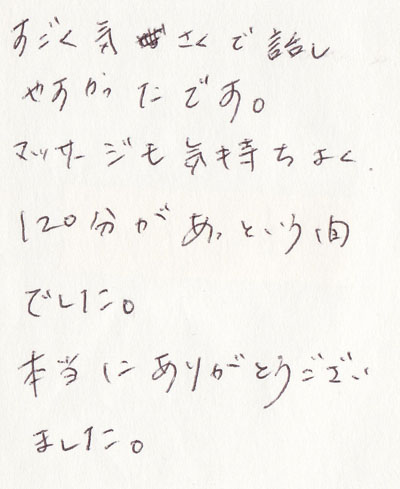 すごく気さくで話し
やすかったです。
マッサージも気持ちよく
120分があっという間
でした。
本当にありがとうござい
ました。